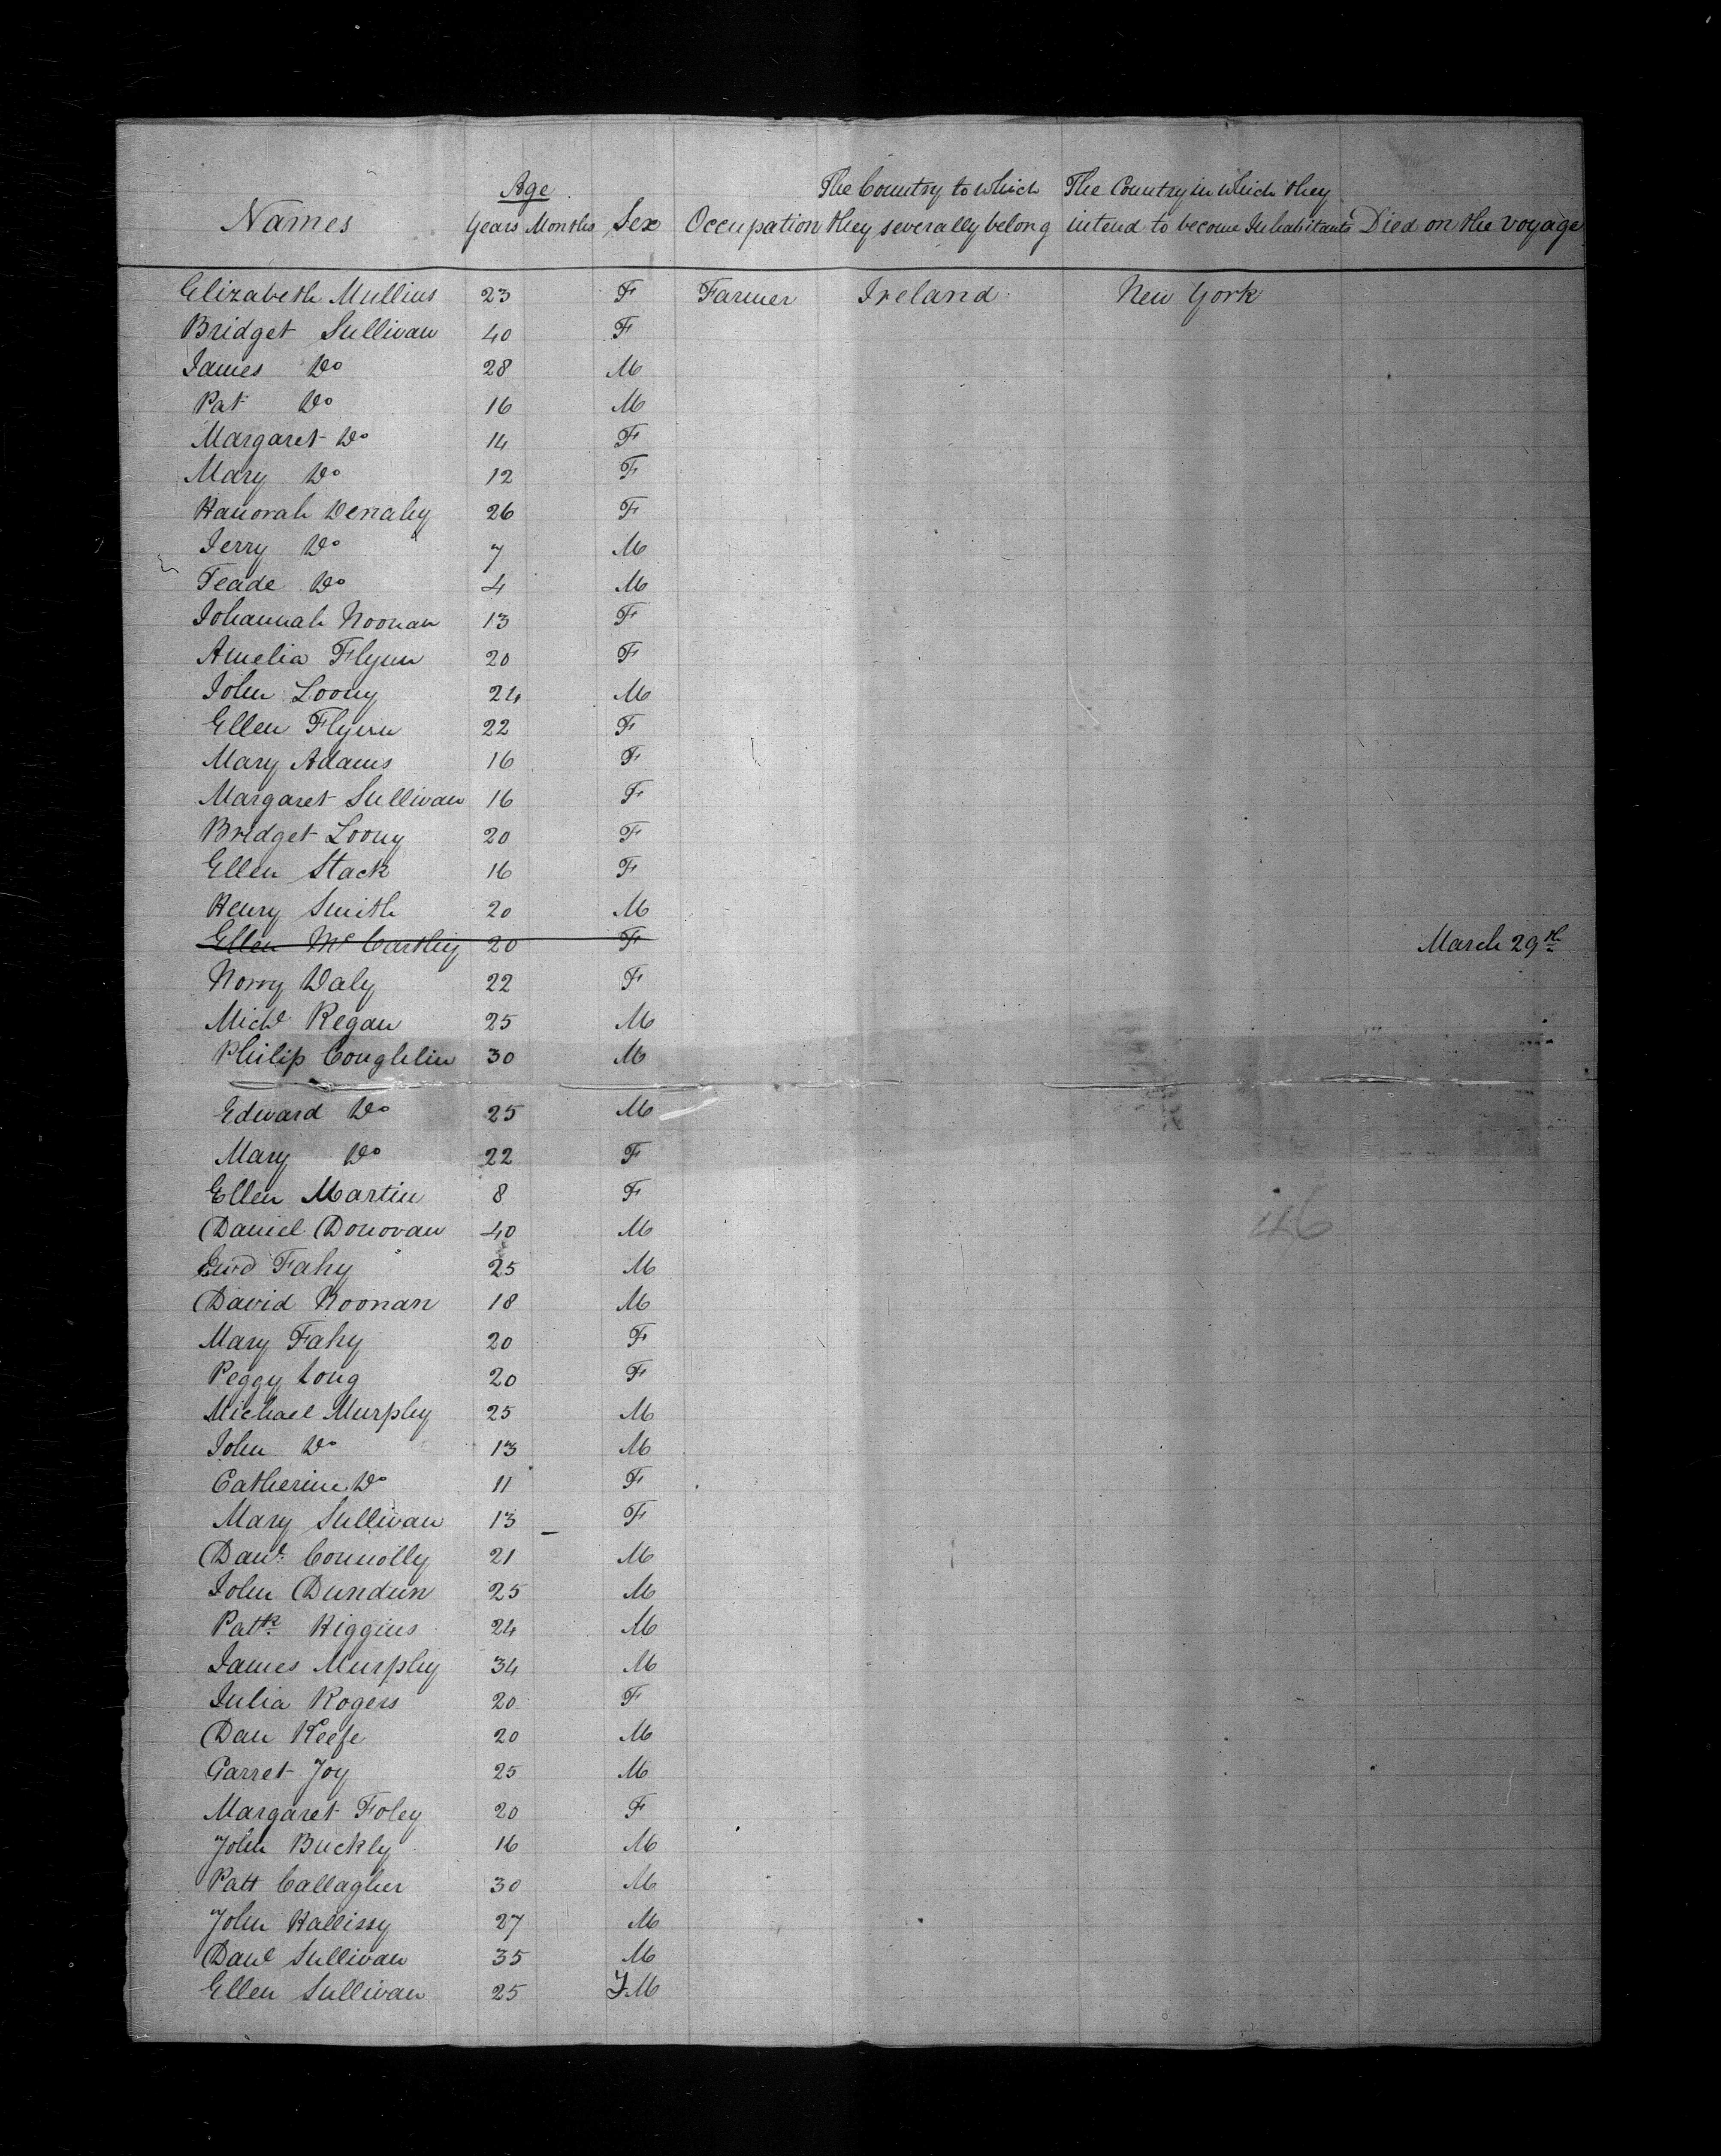 Age
The Country to which The Country in which they
Names Years Months Sex Occupation they severally belong intend to become Inhabitants Died on the voyage
Elizabeth Mullins 23 F Farmer Ireland New York
Bridget Sullivan 40 F
James Do 28 M
Pat Do 16 M
Margaret Do 14 F
Mary Do 12 F
Hanorah Denahy 26 F
Jerry Do 7 M
Teade Do 4 M
Johannah Noonan 13 F
Amelia Flynn 20 F
John Loony 24 M
Ellen Flynn 22 F
Mary Adams 16 F
Margaret Sullivan 16 F
Bridget Loony 20 F
Ellen Stack 16 F
Henry Smith 20 M
Ellen McCarthy 20 F March 29th
Norry Daly 22 F
Michl Regan 25 M
Philip Coughlin 30 M
Edward Do 25 M
Mary Do 22 F
Ellen Martin 8 F
Daniel Donovan 40 M
46
Ewd Fahy 25 M
David Noonan 18 M
Mary Fahy 20 F
Peggy Long 20 F
Michael Murphy 25 M
John Do 13 M
Catherine Do 11 F
Mary Sullivan 13 F
Danl. Connolly 21 M
John Dundun 25 M
Pattk. Higgins 24 M
James Murphy 34 M
Julia Rogers 20 F
Dan Keefe 20 M
Garret Joy 25 M
Margaret Foley 20 F
John Buckly 16 M
Patt Callagher 30 M
John Hallissy 27 M
Danl Sullivan 35 M
Ellen Sullivan 25 F M